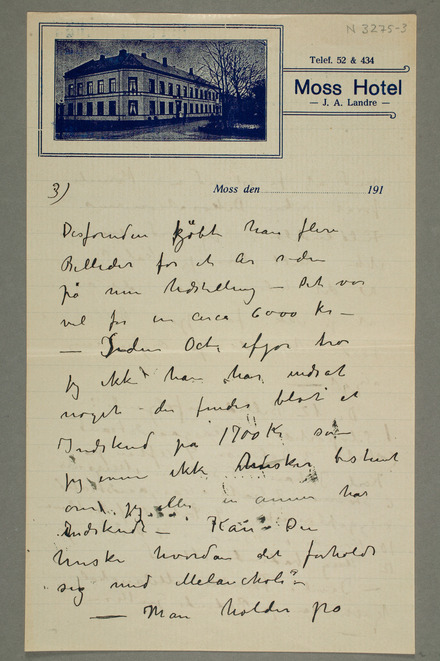 N 3275-3
Telef. 52 & 434
Moss Hotel
— J. A. Landre —
3)
Moss den 191
Desforuden kjöbte han flere
Billeder for et År siden
på min Udstilling – Det var
vel for en circa 6000 Kr –
– Inden Oct. ifjor tror
jeg ikke han har indsat
noget – der findes blot et
Indskud på 1700 Kr som
jeg ikke husker bestemt
om jeg eller en annen har
Indskudt – Kan Du
huske hvordan det forholdt
sig med Melancholi?
— Man holder på